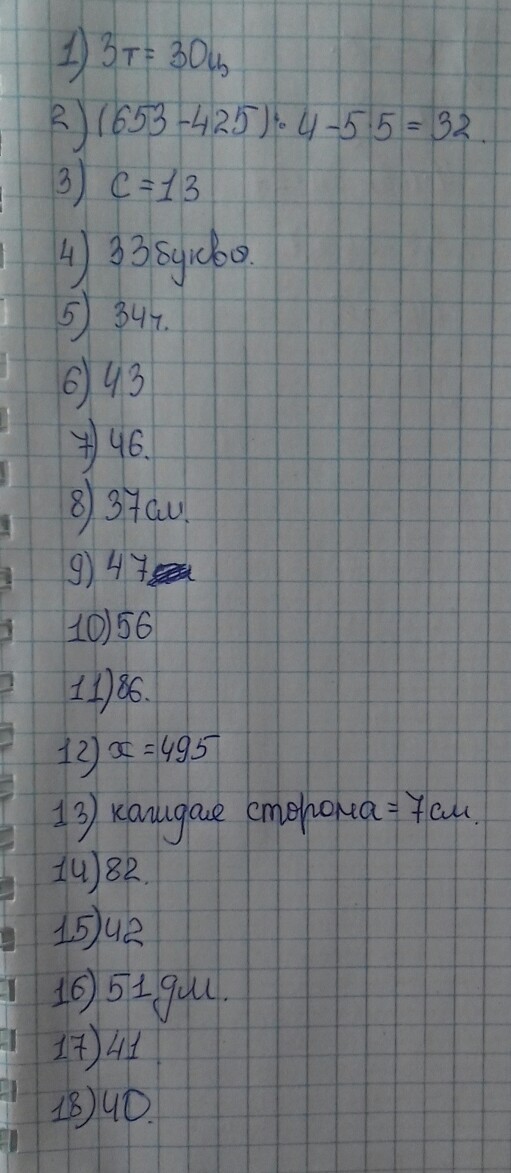 1) 3т = 30ц
2) (653 - 425) : 4 - 5 5 = 32.
3) С = 13
4) 33 буквы.
5) 34ч.
6) 43
7) 46.
8) 37см.
9) 47
10) 56
11) 86.
12) x = 495
13) каждая сторона = 7см.
14) 82.
15) 42
16) 51 дм.
17) 41.
18) 40.